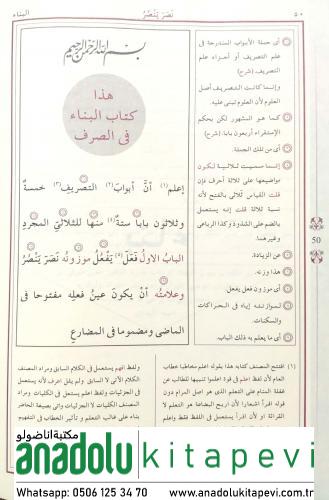 البناء
نَصَرَ يَنْصُرُ
٥٠
بسم الله الرحمن الرحيم
هذا
كتاب البناء
فى الصرف
إعلم(١) أنّ أبوابَ(٢) التصريفِ(٣) خمسةٌ
وثلاثون بابا ستةٌ منها للثلاثيّ المجرّد
البابُ الاولُ فَعَلَ(٤) يَفْعُلُ موزونُه نَصَرَ يَنْصُرُ
وعلامتُه أنْ يكونَ عينُ فعلِه مفتوحا فى
الماضى ومضموما فى المضارع
أى جملة الأبواب المندرجة فى
علم التصريف أو أجزاء علم
التصريف. (شرح)
وإنما كانت التصريف أصل
العلوم لأن العلوم تبنى عليه.
كما هو المشهور لكن بحكم
الإستقراء أربعون بابا. (شرح)
أى من تلك الجملة.
إنما سميت ثلاثية لكون
مواضيعها على ثلاثة أحرف فإن
قلت القياس ثلاثى بالفتح لأنه
نسبة ثلاثة قلت إنه يستعمل
بالضم على الشذوذ وكذا الرباعى
وغيرهما.
عن الزيادة.
هذا وزنه.
أى موزون فعل يفعل.
لموازنته إياه فى الحركات
والسكنات.
أى ما يعلم به ذلك الباب.
50
(١) افتتح المصنف كتابه هذا بقوله اعلم مخاطبا بخطاب
العام لأن لفظ اعلم فى قوة اعلموا تنبيها للطالب عن
غفلة المتنام على التعلم الذى هو اصل المرام دون
قوله اقرأ اشعارا لأن اربح البضاعة هو التعلم لا
القرائة او لأن اقرأ يستعمل فى اللفظ فقط واعلم
ولفظ افهم يستعمل فى الكلام السابق ومراد المصنف
الكلام الآتى لا السابق ولم يقل اعرف لأنه يستعمل
فى الجزئيات ولفظ اعلم يستعمل فى الكليات ومراد
المصنف الكليات لا الجزئيات واتى بصيغة الحاضر
بناء على غالب التعلم و تأثير الخطاب فى التفهيم
مكتبة اناضولو
anadolukitapevi
Whatsapp: 0506 125 34 70 www.anadolukitapevi.com.tr